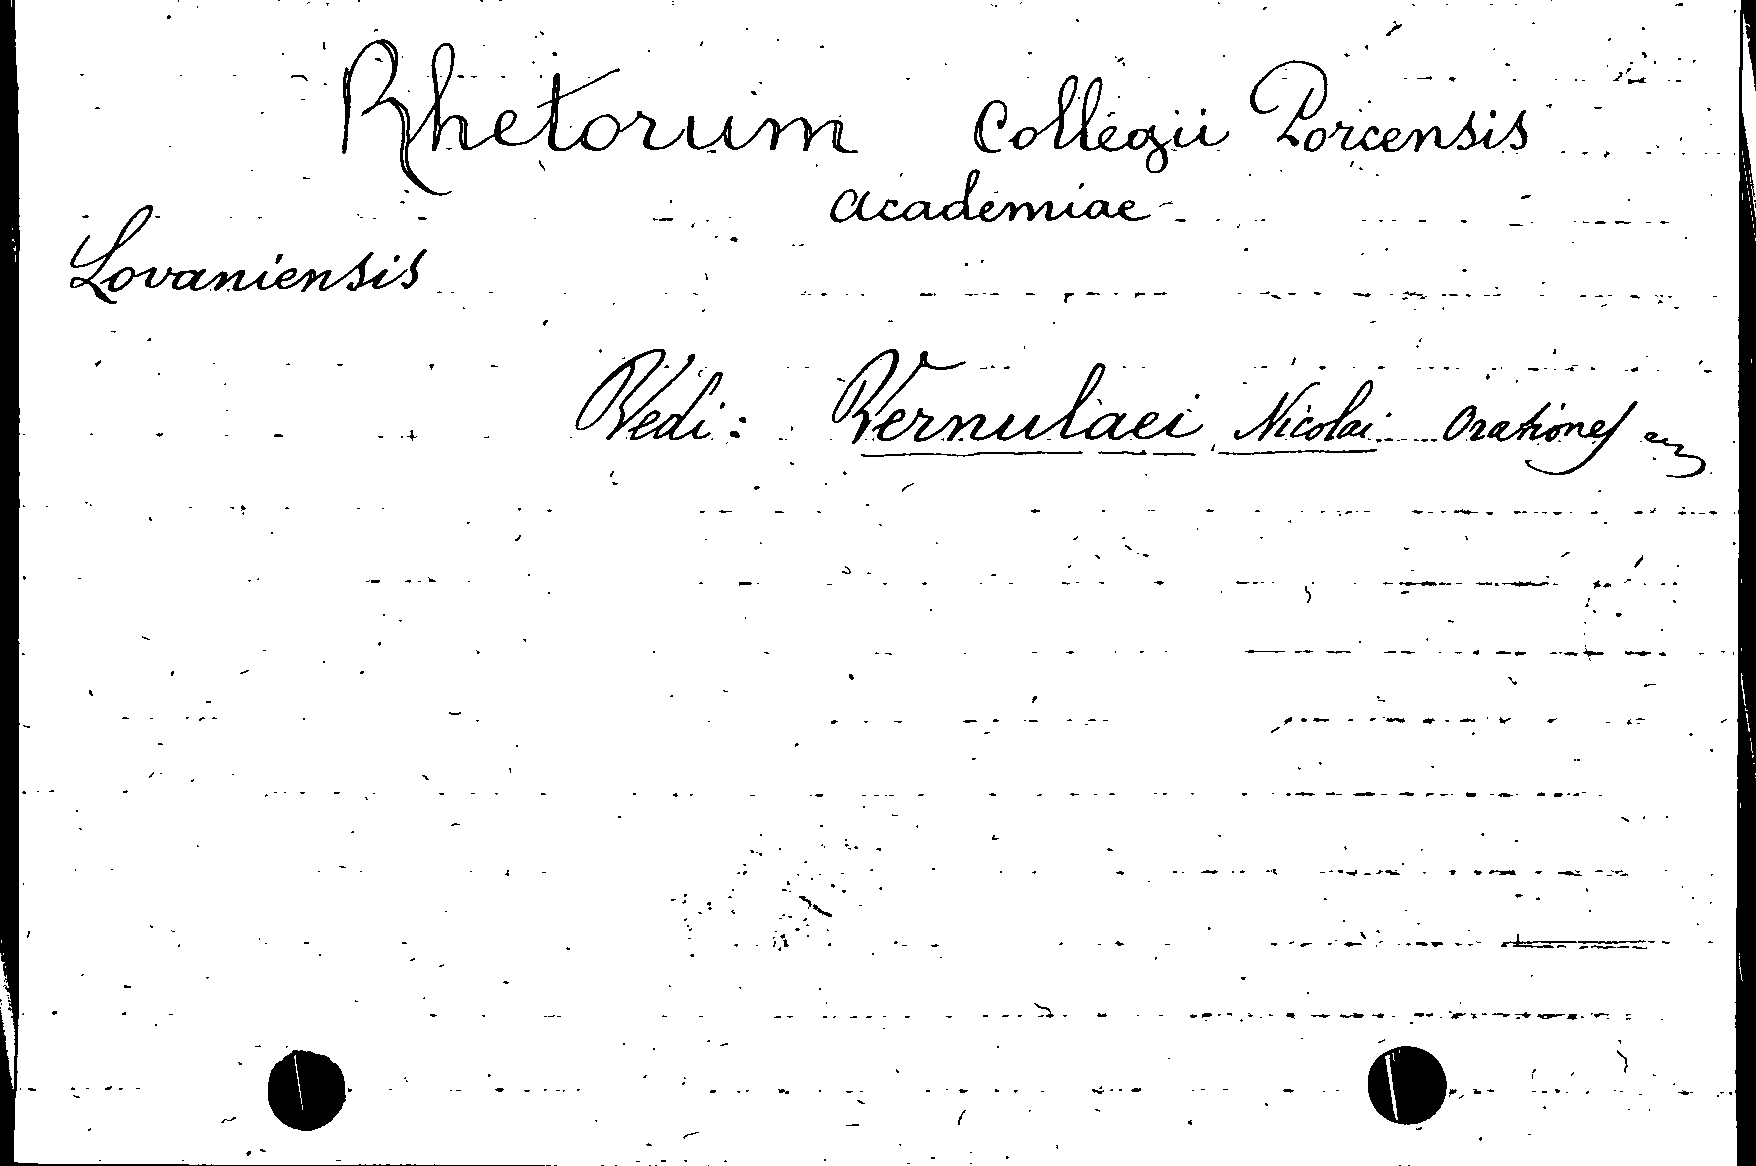 Rhetorum Collegii Porcensis
academiae
Lovaniensis
Vedi: Vernulaei Nicolai Orationes